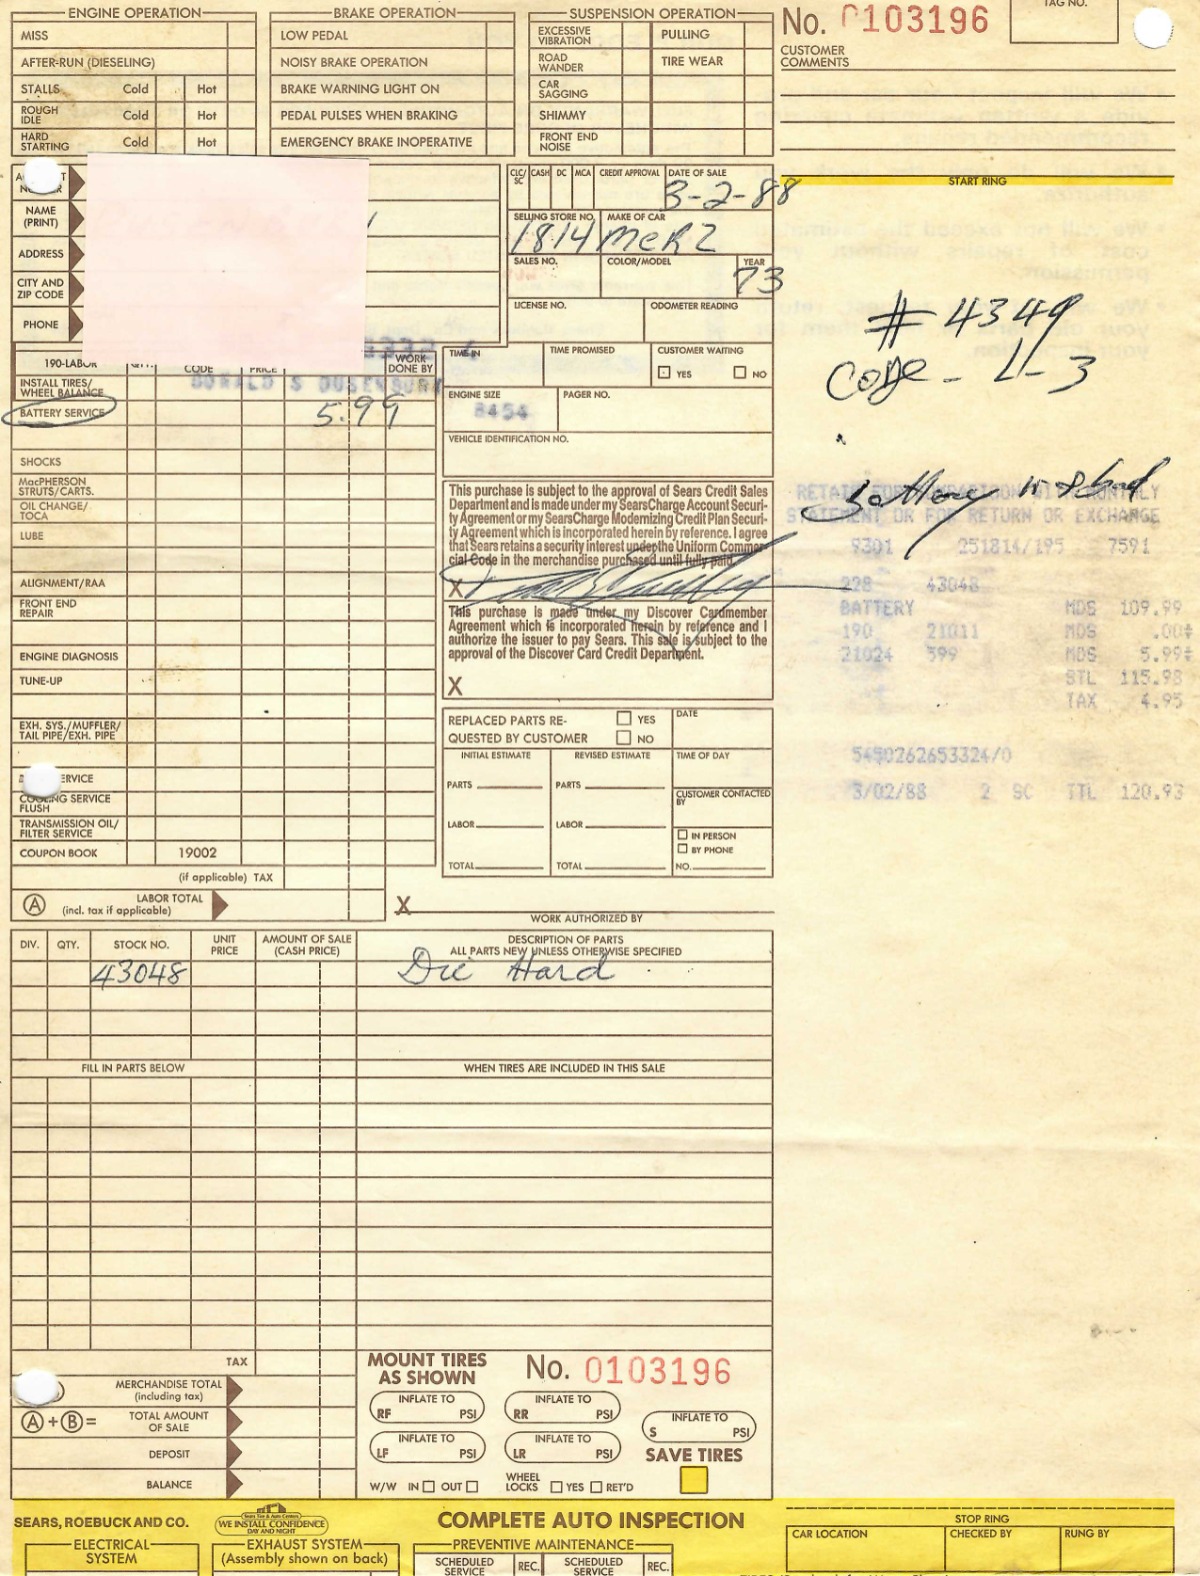 ENGINE OPERATION
MISS
AFTER-RUN (DIESELING)
STALLS Cold Hot
ROUGH IDLE Cold Hot
HARD STARTING Cold Hot
BRAKE OPERATION
LOW PEDAL
NOISY BRAKE OPERATION
BRAKE WARNING LIGHT ON
PEDAL PULSES WHEN BRAKING
EMERGENCY BRAKE INOPERATIVE
SUSPENSION OPERATION
EXCESSIVE VIBRATION PULLING
ROAD WANDER TIRE WEAR
CAR SAGGING
SHIMMY
FRONT END NOISE
No. 0103196
TAG NO.
CUSTOMER COMMENTS
START RING
NAME (PRINT)
ADDRESS
CITY AND ZIP CODE
PHONE
CLC/SC CASH DC MCA CREDIT APPROVAL DATE OF SALE
3-2-88
SELLING STORE NO. MAKE OF CAR
1814 MERZ
SALES NO. COLOR/MODEL YEAR
73
LICENSE NO. ODOMETER READING
# 4349
CODE - L-3
190-LABOR CODE PRICE WORK DONE BY
INSTALL TIRES/WHEEL BALANCE
BATTERY SERVICE 5.99
SHOCKS
MacPHERSON STRUTS/CARTS.
OIL CHANGE/TOCA
LUBE
ALIGNMENT/RAA
FRONT END REPAIR
ENGINE DIAGNOSIS
TUNE-UP
EXH. SYS./MUFFLER/TAIL PIPE/EXH. PIPE
COOLING SERVICE FLUSH
TRANSMISSION OIL/FILTER SERVICE
COUPON BOOK 19002
(if applicable) TAX
A LABOR TOTAL (incl. tax if applicable)
TIME IN TIME PROMISED CUSTOMER WAITING
YES NO
ENGINE SIZE PAGER NO.
8454
VEHICLE IDENTIFICATION NO.
This purchase is subject to the approval of Sears Credit Sales
Department and is made under my SearsCharge Account Securi-
ty Agreement or my SearsCharge Modernizing Credit Plan Securi-
ty Agreement which is incorporated herein by reference. I agree
that Sears retains a security interest under the Uniform Commer-
cial Code in the merchandise purchased until fully paid.
X
This purchase is made under my Discover Cardmember
Agreement which is incorporated herein by reference and I
authorize the issuer to pay Sears. This sale is subject to the
approval of the Discover Card Credit Department.
X
REPLACED PARTS RE- YES DATE
QUESTED BY CUSTOMER NO
INITIAL ESTIMATE REVISED ESTIMATE TIME OF DAY
PARTS PARTS
CUSTOMER CONTACTED BY
LABOR LABOR
IN PERSON
BY PHONE
TOTAL TOTAL NO.
X
WORK AUTHORIZED BY
battery
RETAIN FOR COMPARISON WITH MONTHLY
STATEMENT OR FOR RETURN OR EXCHANGE
9301 251814/195 7591
228 43048
BATTERY MDS 109.99
190 21011 MDS .00‡
21024 599 MDS 5.99‡
STL 115.98
TAX 4.95
5450262653324/0
3/02/88 2 SC TTL 120.93
DIV. QTY. STOCK NO. UNIT PRICE AMOUNT OF SALE (CASH PRICE) DESCRIPTION OF PARTS
ALL PARTS NEW UNLESS OTHERWISE SPECIFIED
43048 Die Hard
FILL IN PARTS BELOW WHEN TIRES ARE INCLUDED IN THIS SALE
TAX
MERCHANDISE TOTAL (including tax)
A + B = TOTAL AMOUNT OF SALE
DEPOSIT
BALANCE
MOUNT TIRES AS SHOWN
No. 0103196
INFLATE TO RF PSI
INFLATE TO RR PSI
INFLATE TO LF PSI
INFLATE TO LR PSI
INFLATE TO S PSI
SAVE TIRES
W/W IN OUT WHEEL LOCKS YES RET'D
SEARS, ROEBUCK AND CO.
Sears Tire & Auto Centers
WE INSTALL CONFIDENCE
DAY AND NIGHT
COMPLETE AUTO INSPECTION
STOP RING
CAR LOCATION CHECKED BY RUNG BY
ELECTRICAL SYSTEM
EXHAUST SYSTEM
(Assembly shown on back)
PREVENTIVE MAINTENANCE
SCHEDULED SERVICE REC. SCHEDULED SERVICE REC.